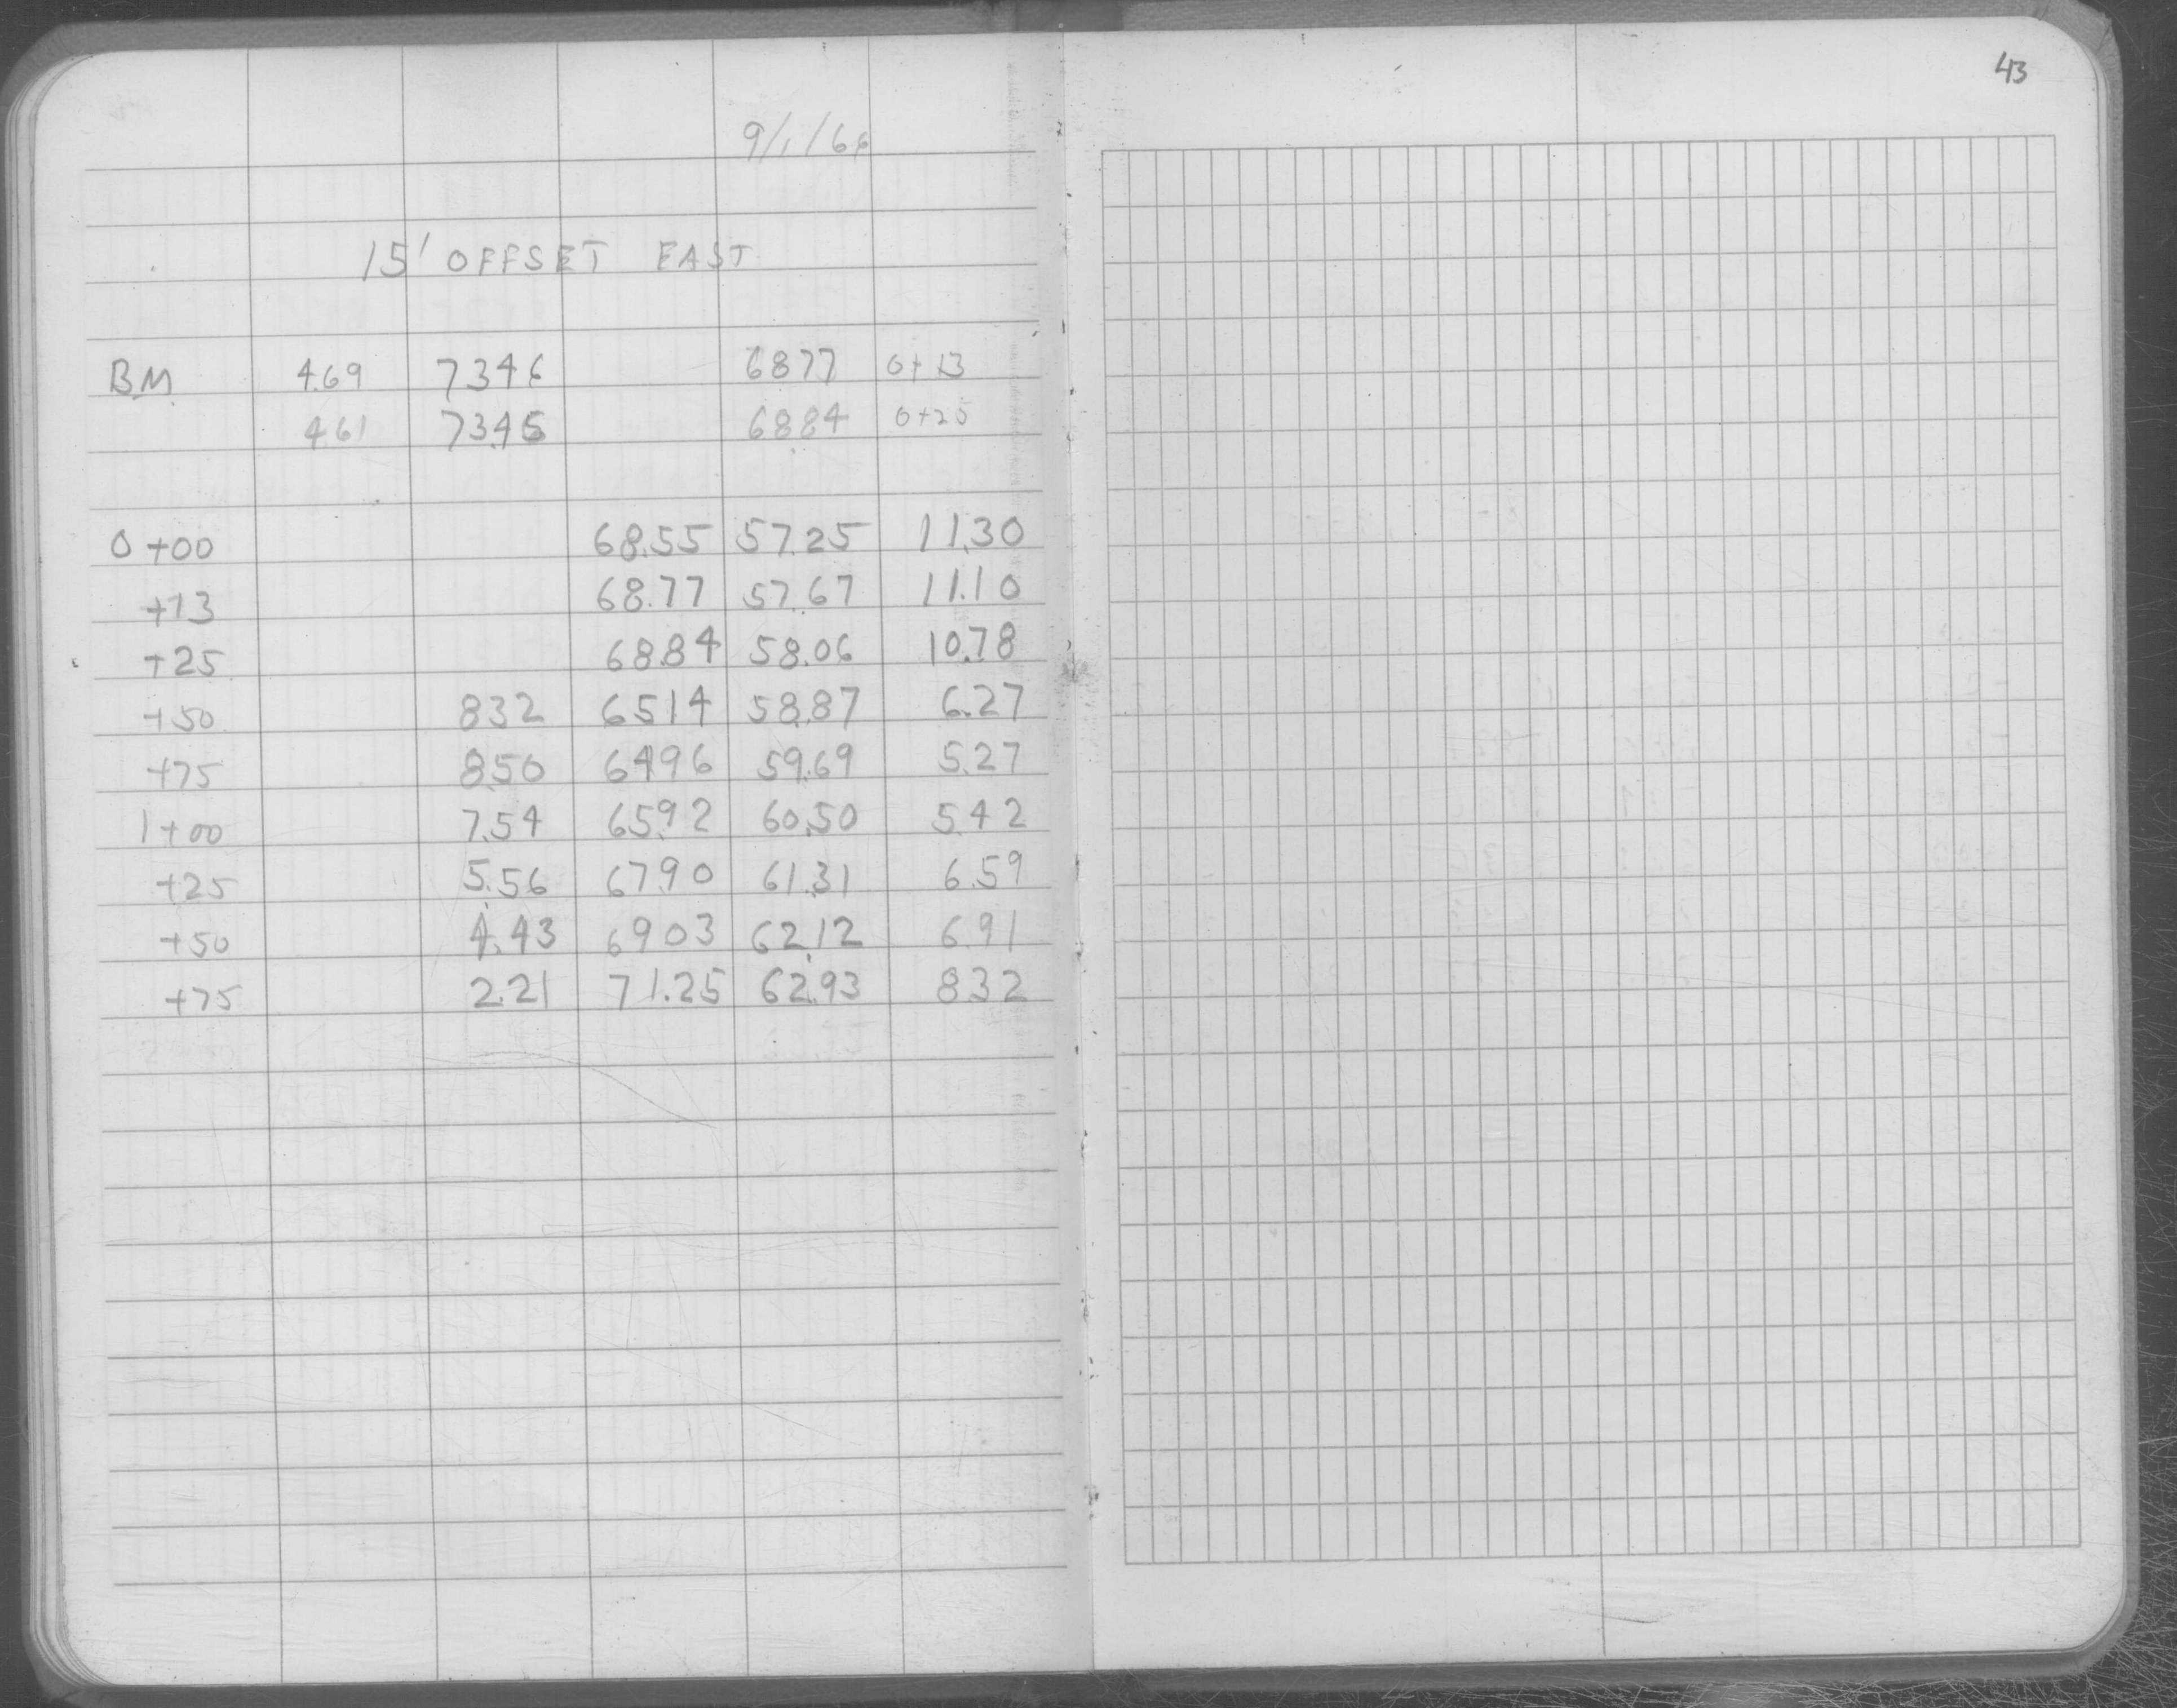 43
9/1/66
15' OFFSET EAST
BM 4.69 7346 6877 0+13
461 7345 6884 0+25
0+00 68.55 57.25 11.30
+13 68.77 57.67 11.10
+25 68.84 58.06 10.78
+50 832 6514 58.87 6.27
+75 8.50 6496 59.69 5.27
1+00 7.54 65.92 60.50 5.42
+25 5.56 67.90 61.31 6.59
+50 4.43 6903 62.12 6.91
+75 2.21 71.25 62.93 832